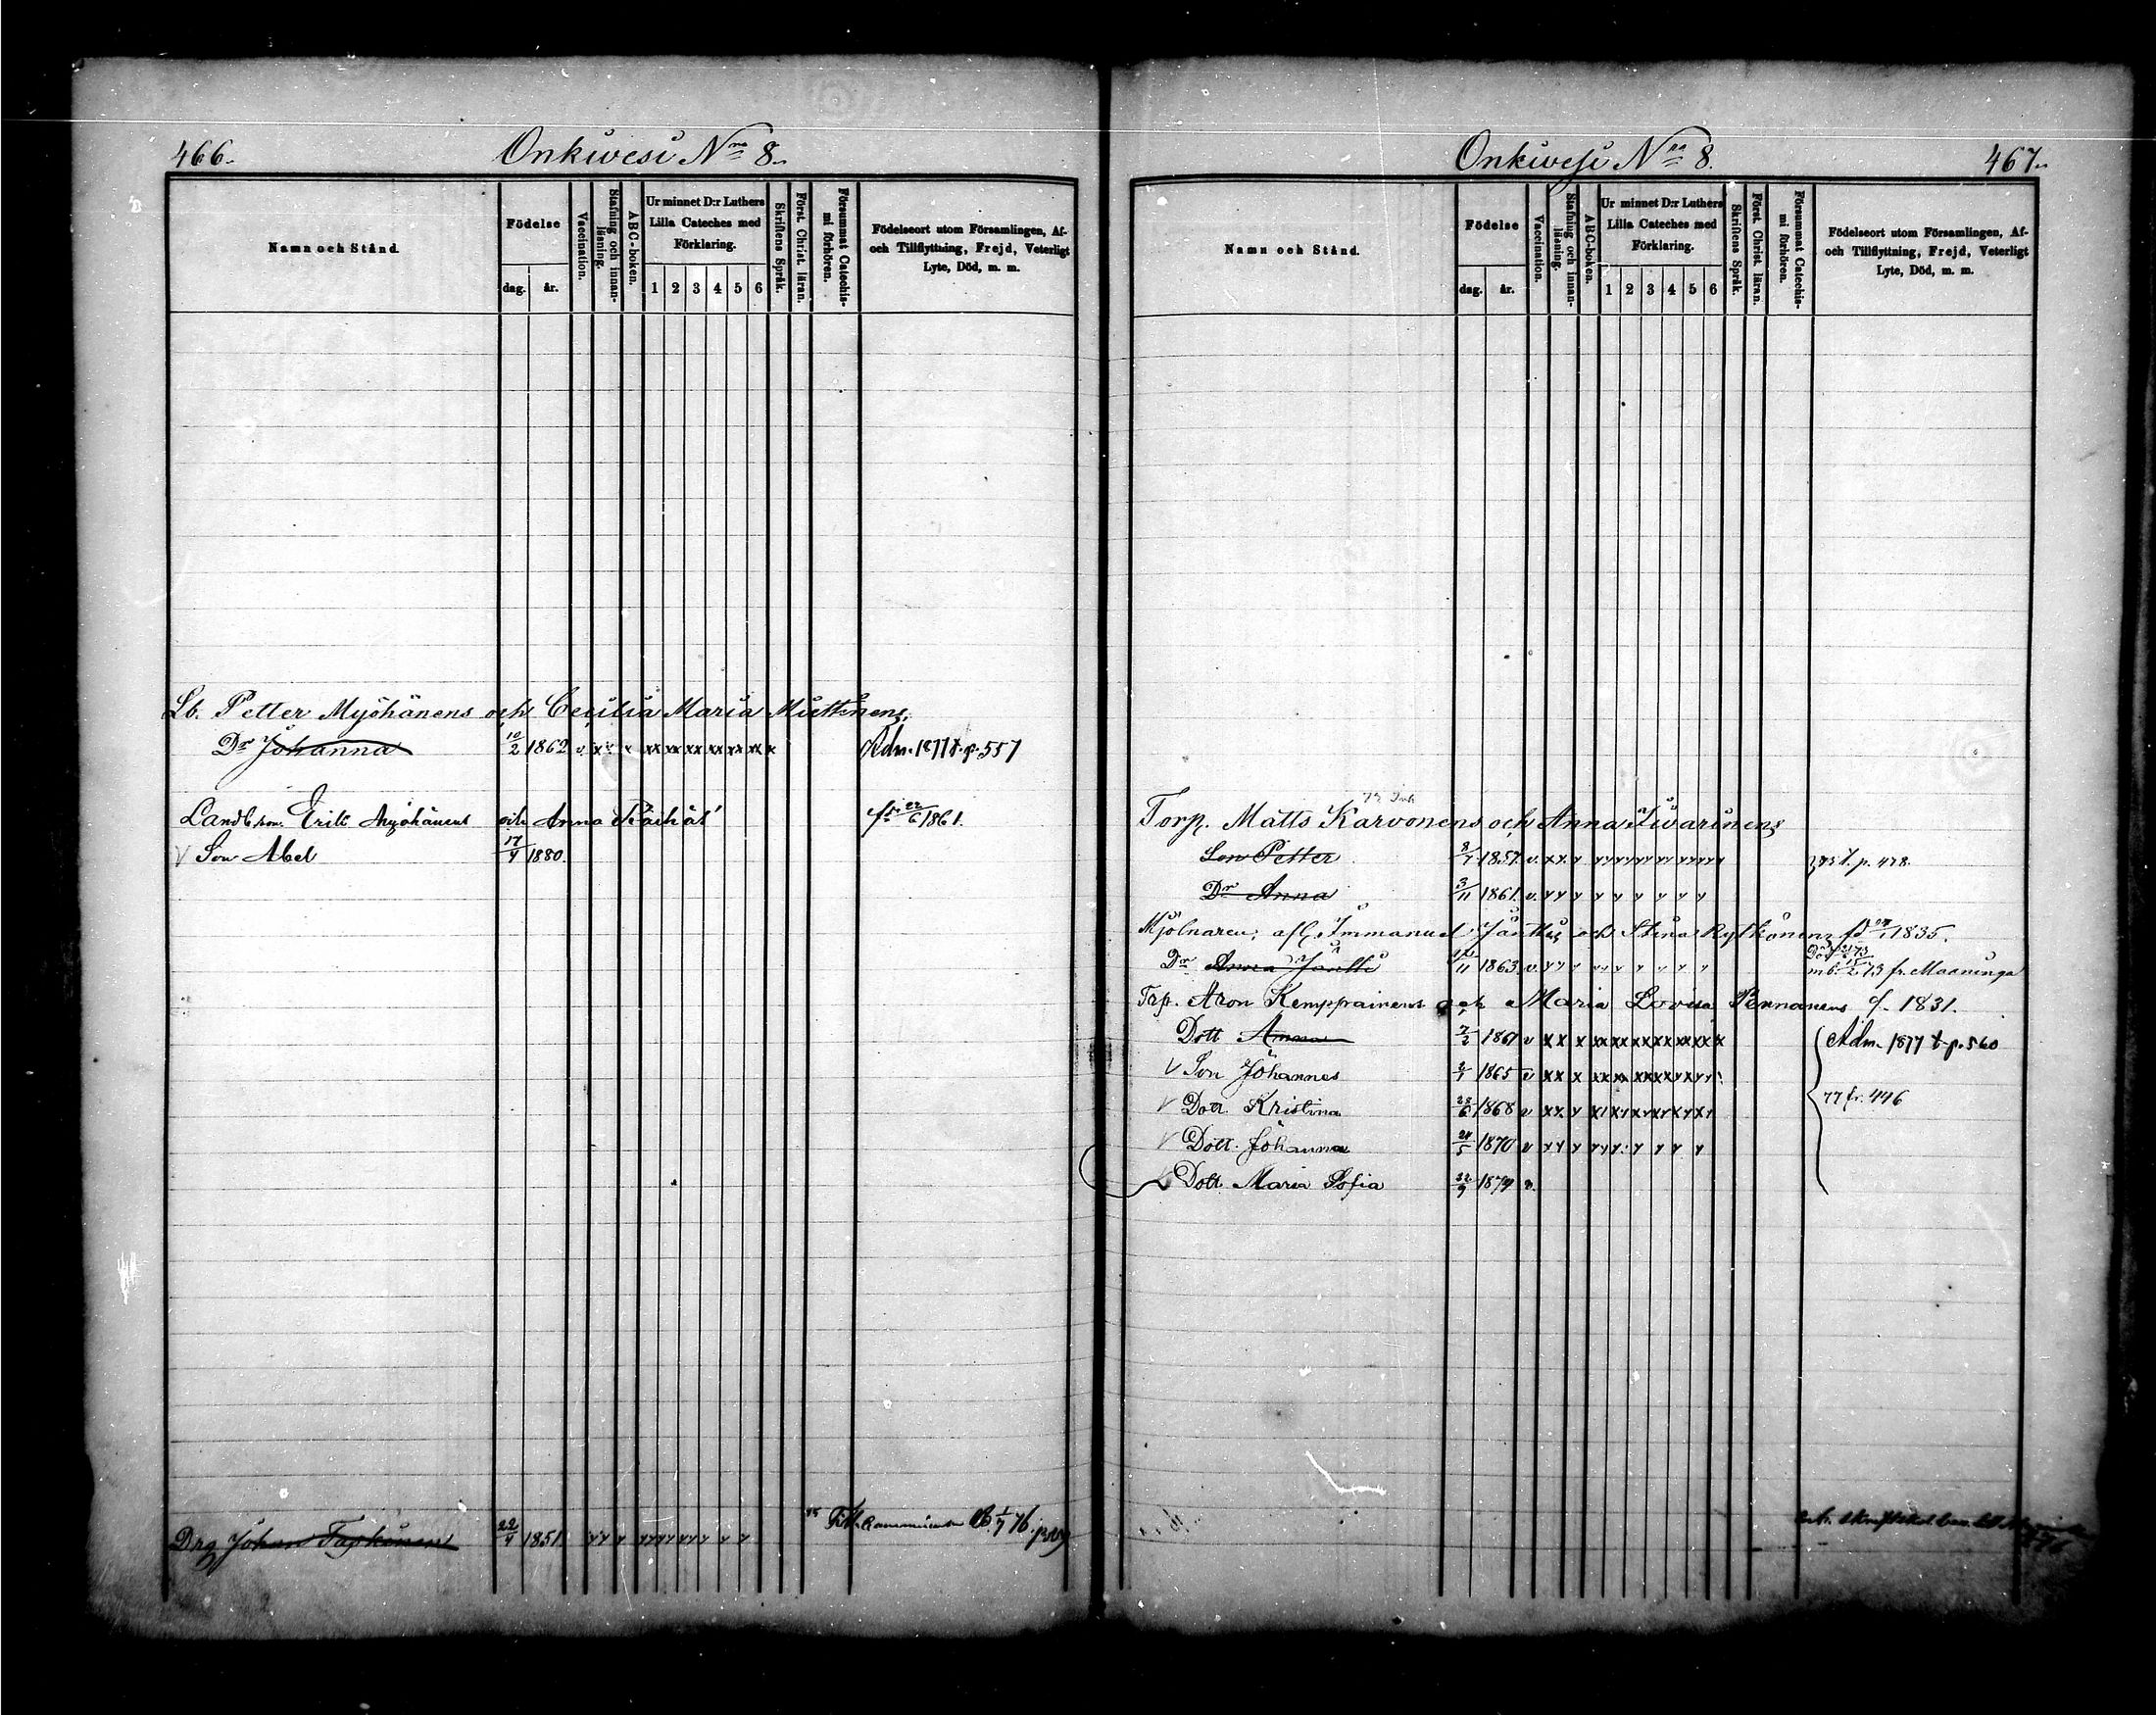 466.
Onkivesi Nro 8.
Namn och Stånd.
Födelse
dag. år.
Vaccination.
Stafning och innan-läsning.
ABC-boken.
Ur minnet D:r Luthers Lilla Cateches med Förklaring.
1 2 3 4 5 6
Skriftens Språk.
Först. Christ. läran.
Försummat Catechismi förhören.
Födelseort utom Församlingen, Af- och Tillflyttning, Frejd, Veterligt Lyte, Död, m. m.
Lb. Petter Myöhänens och Cecilia Maria Miettinens
Dr Johanna 10/2 1862 v x x x xx xx xx xx xx xx x Adm. 1877 t. p. 557
Landb. son. Erik Myöhänens och Anna Räihäs 22/6 1861.
V Son Abel 17/4 1880.
Drg Johan Tapkinen 22/4 1851. 1/7 76.
Onkivesi Nro 8.
467.
Namn och Stånd.
Födelse
dag. år.
Vaccination.
Stafning och innan-läsning.
ABC-boken.
Ur minnet D:r Luthers Lilla Cateches med Förklaring.
1 2 3 4 5 6
Skriftens Språk.
Först. Christ. läran.
Försummat Catechis-mi förhören.
Födelseort utom Församlingen, Af- och Tillflyttning, Frejd, Veterligt Lyte, Död, m. m.
Torp. Matts Karvonens och Anna Iivarinens
Son Petter 8/7 1857. v. 75 t. p. 478.
Dr Anna 3/11 1861. v.
Mjölnaren, afl. Immanuel Jänttis och Stina Rytkönens 1835.
Dr Anna Jäntti 1863. v. 73 fr. Maaninga
Trp. Aron Kemppainens och Maria Lovisa Pennanens f. 1831.
Dott Anna 7/2 1861 v x x x Adm. 1877 t. p. 560
V Son Johannes 2/1 1865 v x x x
V Dott. Kristina 28/6 1868 v 77 fr. 446
V Dott. Johanna 24/5 1870 v
V Dott Maria Sofia 22/9 1879 v.